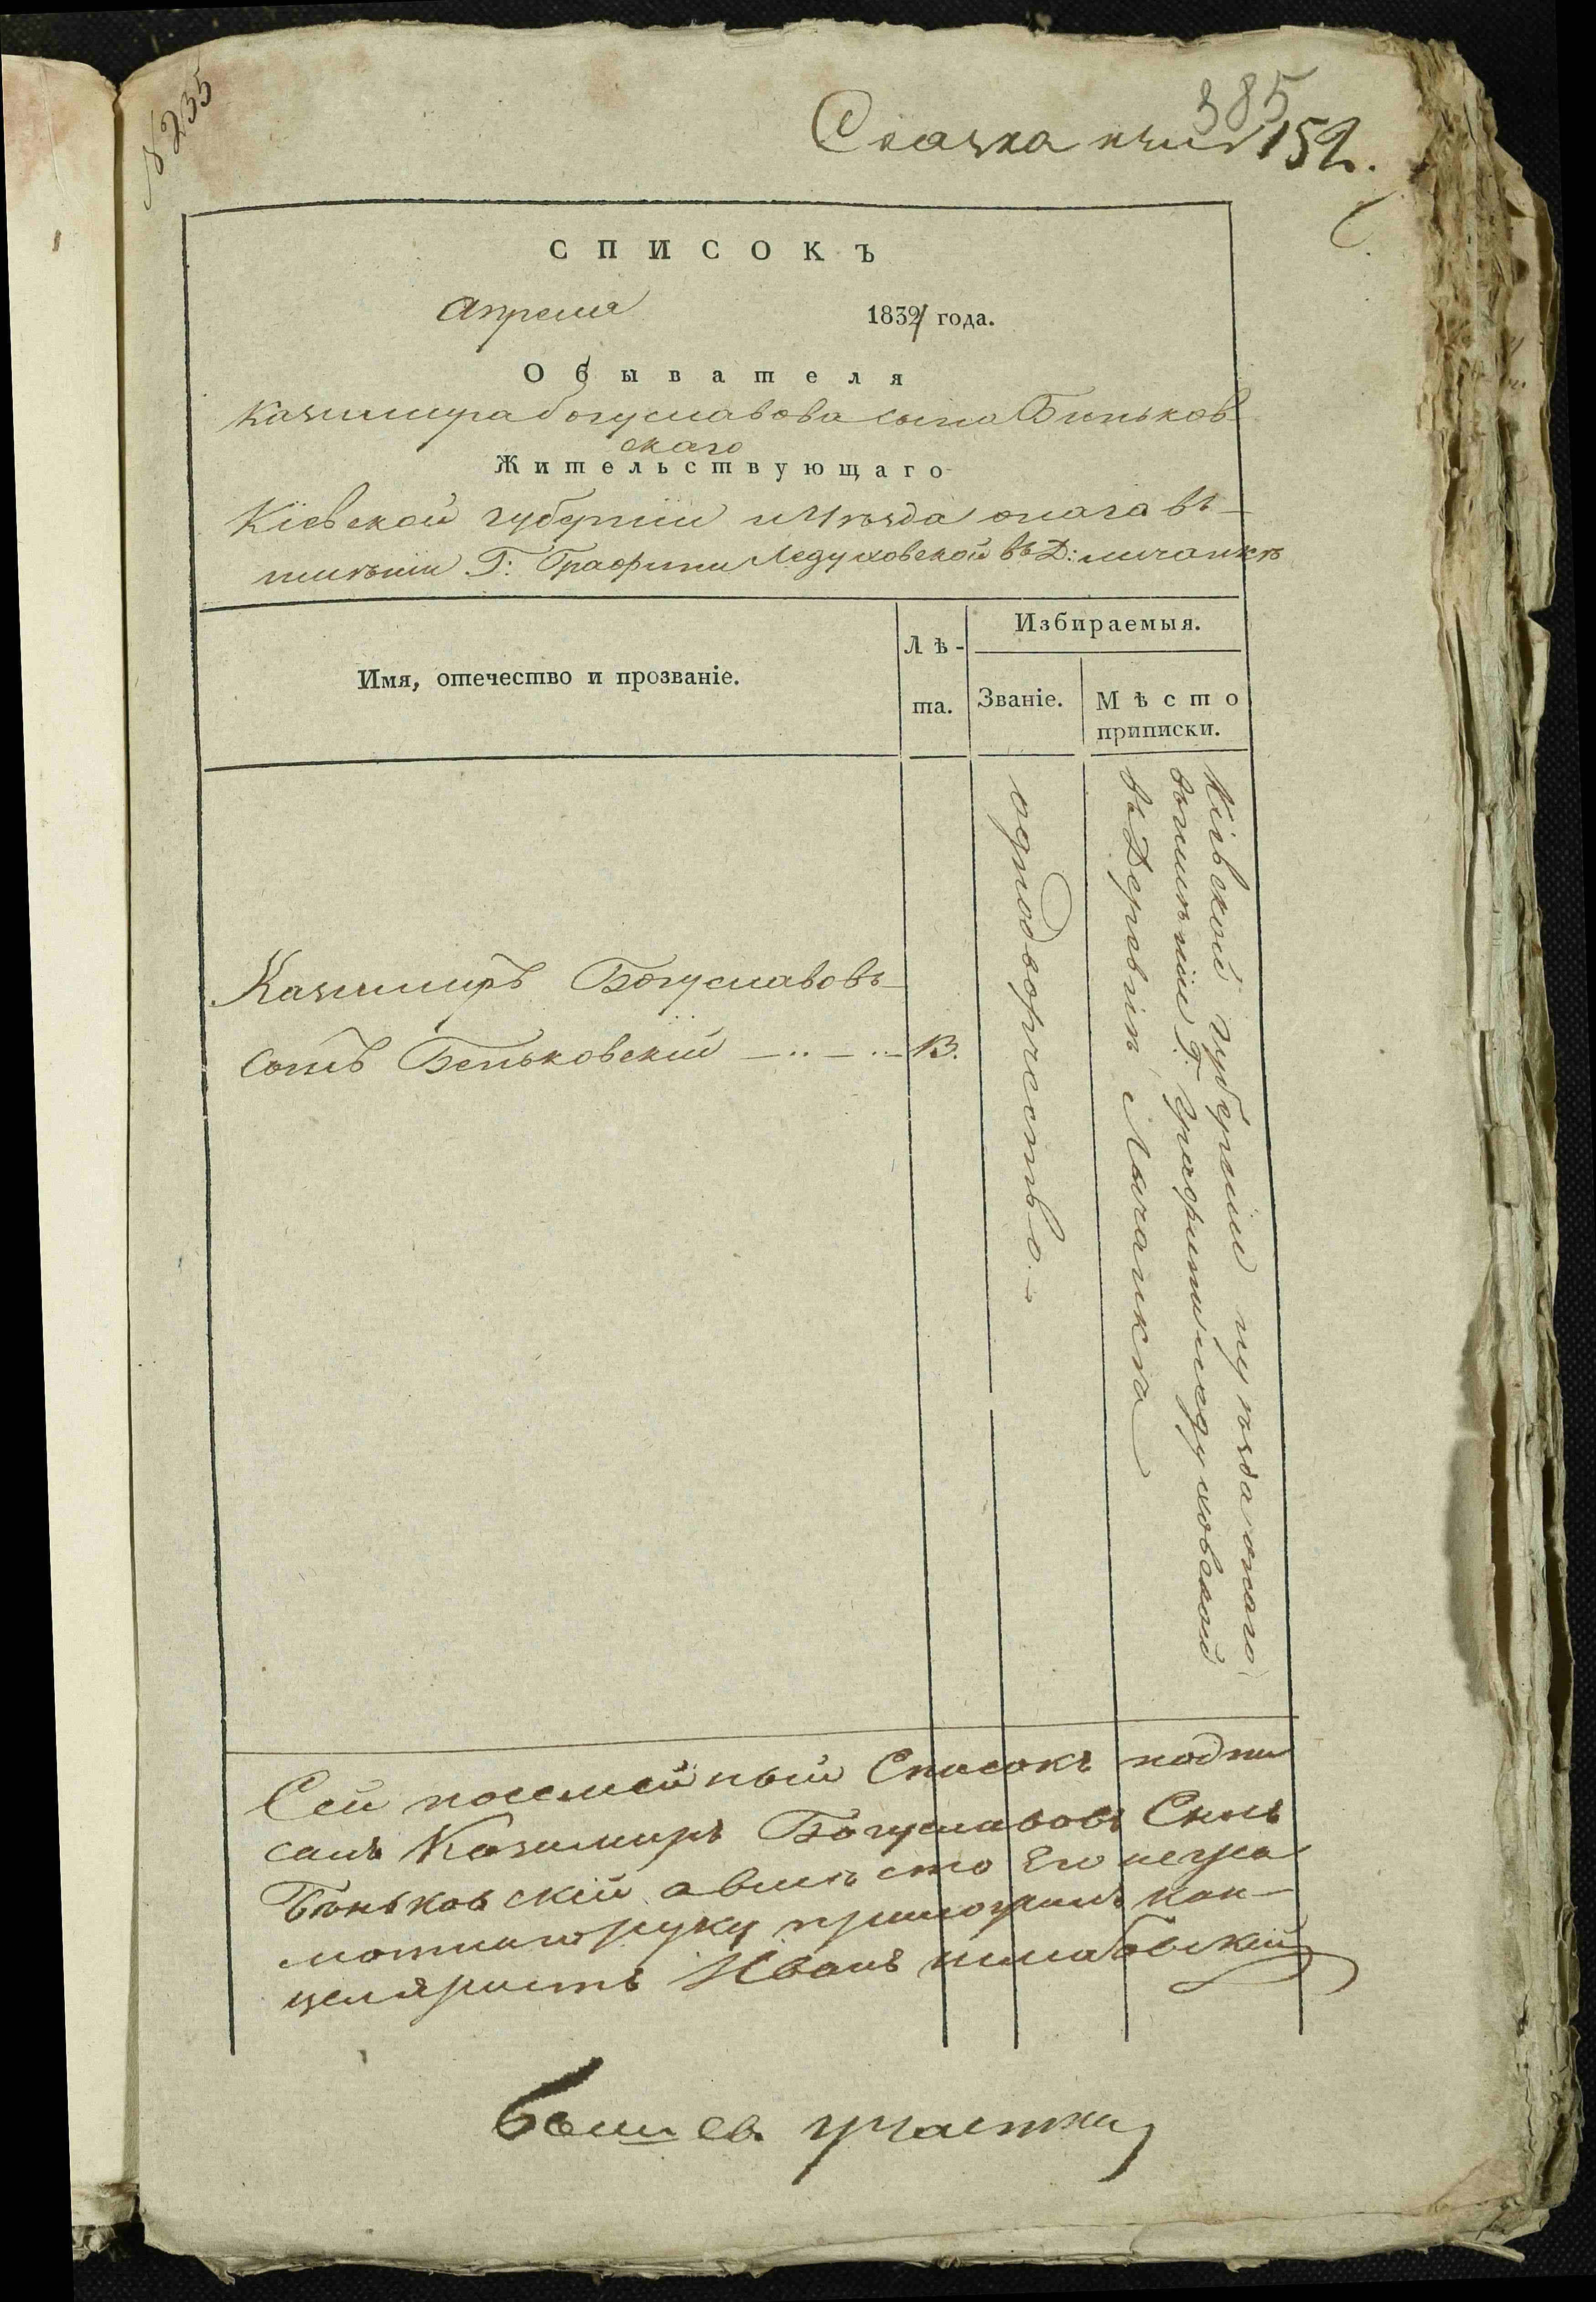 № 235
385
Сказка 152.
СПИСОКЪ
Апреля 1832 года.
Обывателя
Казимира богуславова сына Биньков-
скаго
Жительствующаго
Кіевской губерніи и уѣзда онаго въ
имѣніи Г: Графини Ледуховской въ Д: личанкѣ
Имя, отечество и прозваніе.
Лѣ-
та.
Избираемыя.
Званіе.
Мѣсто
приписки.
Казимиръ Богуславовъ
сынъ Беньковскій 13.
однодворчество.
Кіевской губерніи и уѣзда онаго
въ имѣніи Г: Графини ледуховской
въ Деревнѣ Лычанкѣ
Сей посемейный Списокъ подпи
салъ Казимиръ Богуславовъ Сынъ
Беньковскій а вмѣсто Его негра
мотнаго руку приложилъ кан-
целяристъ Иванъ
участка